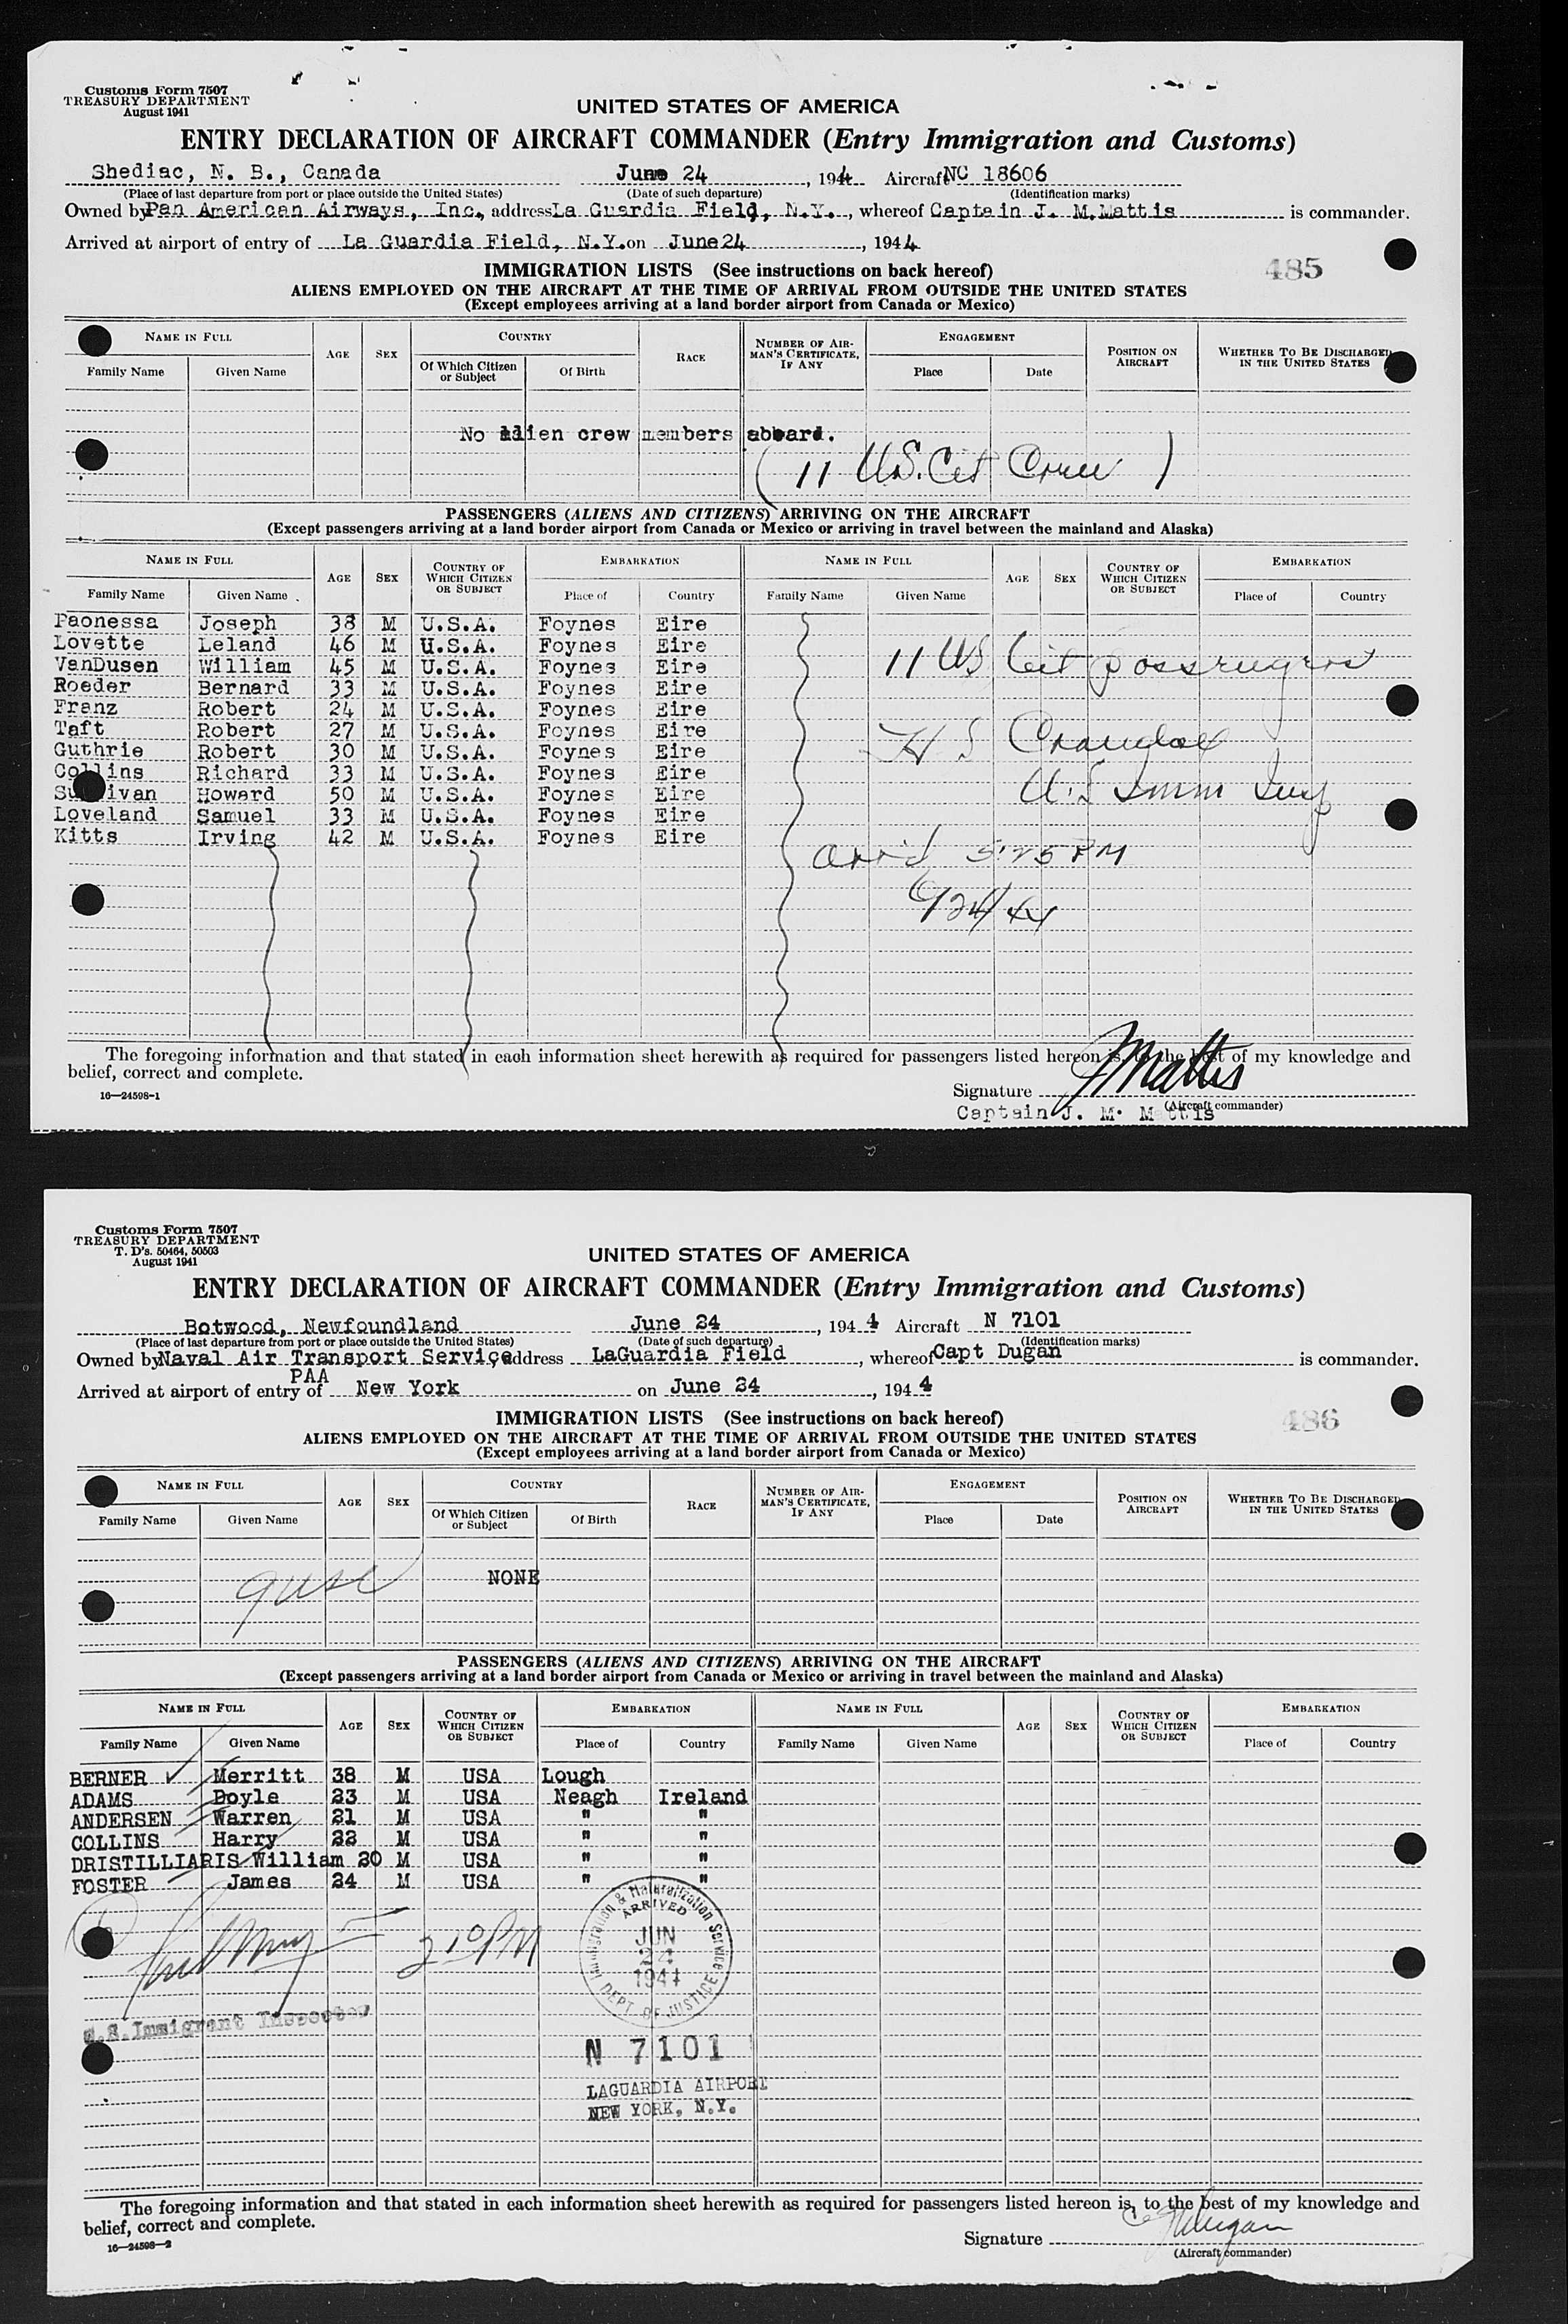 Customs Form 7507
TREASURY DEPARTMENT
August 1941
UNITED STATES OF AMERICA
ENTRY DECLARATION OF AIRCRAFT COMMANDER (Entry Immigration and Customs)
Shediac, N. B., Canada June 24, 1944 Aircraft NC 18606
(Place of last departure from port or place outside the United States) (Date of such departure) (Identification marks)
Owned by Pan American Airways, Inc. address La Guardia Field, N.Y., whereof Captain J. M. Mattis is commander.
Arrived at airport of entry of La Guardia Field, N.Y. on June 24, 1944
485
IMMIGRATION LISTS (See instructions on back hereof)
ALIENS EMPLOYED ON THE AIRCRAFT AT THE TIME OF ARRIVAL FROM OUTSIDE THE UNITED STATES
(Except employees arriving at a land border airport from Canada or Mexico)
NAME IN FULL AGE SEX COUNTRY RACE NUMBER OF AIRMAN'S CERTIFICATE, IF ANY ENGAGEMENT POSITION ON AIRCRAFT WHETHER TO BE DISCHARGED IN THE UNITED STATES
Family Name Given Name Of Which Citizen or Subject Of Birth Place Date
No alien crew members aboard.
( 11 U.S. Cit Crew )
PASSENGERS (ALIENS AND CITIZENS) ARRIVING ON THE AIRCRAFT
(Except passengers arriving at a land border airport from Canada or Mexico or arriving in travel between the mainland and Alaska)
NAME IN FULL AGE SEX COUNTRY OF WHICH CITIZEN OR SUBJECT EMBARKATION NAME IN FULL AGE SEX COUNTRY OF WHICH CITIZEN OR SUBJECT EMBARKATION
Family Name Given Name Place of Country Family Name Given Name Place of Country
Paonessa Joseph 38 M U.S.A. Foynes Eire
Lovette Leland 46 M U.S.A. Foynes Eire
VanDusen William 45 M U.S.A. Foynes Eire 11 US Cit passengers
Roeder Bernard 33 M U.S.A. Foynes Eire
Franz Robert 24 M U.S.A. Foynes Eire
Taft Robert 27 M U.S.A. Foynes Eire
Guthrie Robert 30 M U.S.A. Foynes Eire H S
Collins Richard 33 M U.S.A. Foynes Eire
Sullivan Howard 50 M U.S.A. Foynes Eire U.S Imm Insp
Loveland Samuel 33 M U.S.A. Foynes Eire
Kitts Irving 42 M U.S.A. Foynes Eire
Arr'd 5:25 PM
6/24/44
The foregoing information and that stated in each information sheet herewith as required for passengers listed hereon is, to the best of my knowledge and
belief, correct and complete.
16—24598-1
Signature J Mattis
(Aircraft commander)
Captain J. M. Mattis
Customs Form 7507
TREASURY DEPARTMENT
T. D's. 50464, 50503
August 1941
UNITED STATES OF AMERICA
ENTRY DECLARATION OF AIRCRAFT COMMANDER (Entry Immigration and Customs)
Botwood, Newfoundland June 24, 1944 Aircraft N 7101
(Place of last departure from port or place outside the United States) (Date of such departure) (Identification marks)
Owned by Naval Air Transport Service address LaGuardia Field, whereof Capt Dugan is commander.
PAA
Arrived at airport of entry of New York on June 24, 1944
486
IMMIGRATION LISTS (See instructions on back hereof)
ALIENS EMPLOYED ON THE AIRCRAFT AT THE TIME OF ARRIVAL FROM OUTSIDE THE UNITED STATES
(Except employees arriving at a land border airport from Canada or Mexico)
NAME IN FULL AGE SEX COUNTRY RACE NUMBER OF AIRMAN'S CERTIFICATE, IF ANY ENGAGEMENT POSITION ON AIRCRAFT WHETHER TO BE DISCHARGED IN THE UNITED STATES
Family Name Given Name Of Which Citizen or Subject Of Birth Place Date
NONE
PASSENGERS (ALIENS AND CITIZENS) ARRIVING ON THE AIRCRAFT
(Except passengers arriving at a land border airport from Canada or Mexico or arriving in travel between the mainland and Alaska)
NAME IN FULL AGE SEX COUNTRY OF WHICH CITIZEN OR SUBJECT EMBARKATION NAME IN FULL AGE SEX COUNTRY OF WHICH CITIZEN OR SUBJECT EMBARKATION
Family Name Given Name Place of Country Family Name Given Name Place of Country
BERNER Merritt 38 M USA Lough
ADAMS Doyle 23 M USA Neagh Ireland
ANDERSEN Warren 21 M USA " "
COLLINS Harry 22 M USA " "
DRISTILLIARIS William 20 M USA " "
FOSTER James 24 M USA " "
2 10 PM
Immigration & Naturalization Service
ARRIVED
JUN
24
1944
DEPT. OF JUSTICE
U.S. Immigrant Inspector
N 7101
LAGUARDIA AIRPORT
NEW YORK, N.Y.
The foregoing information and that stated in each information sheet herewith as required for passengers listed hereon is, to the best of my knowledge and
belief, correct and complete.
16—24598-2
Signature
(Aircraft commander)